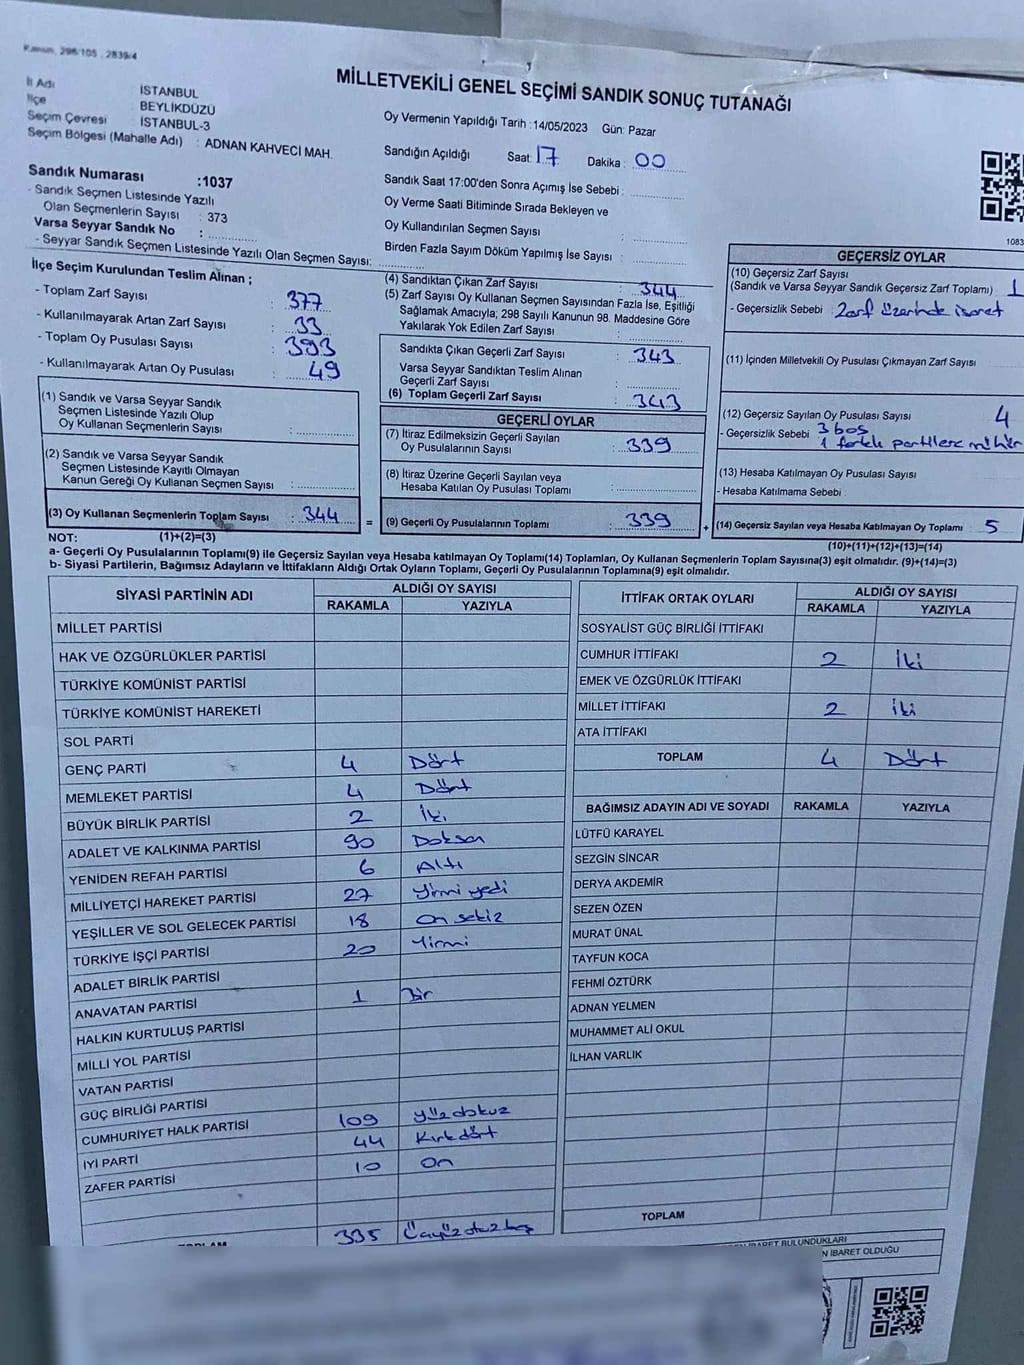 Kanun, 298/105 , 2839/4
MİLLETVEKİLİ GENEL SEÇİMİ SANDIK SONUÇ TUTANAĞI
İl Adı İSTANBUL
İlçe BEYLİKDÜZÜ
Seçim Çevresi İSTANBUL-3
Seçim Bölgesi (Mahalle Adı) : ADNAN KAHVECİ MAH.
Sandık Numarası :1037
- Sandık Seçmen Listesinde Yazılı
Olan Seçmenlerin Sayısı : 373
Varsa Seyyar Sandık No :
- Seyyar Sandık Seçmen Listesinde Yazılı Olan Seçmen Sayısı:
Oy Vermenin Yapıldığı Tarih :14/05/2023 Gün: Pazar
Sandığın Açıldığı Saat: 17 Dakika : 00
Sandık Saat 17:00'den Sonra Açımış İse Sebebi :
Oy Verme Saati Bitiminde Sırada Bekleyen ve
Oy Kullandırılan Seçmen Sayısı :
Birden Fazla Sayım Döküm Yapılmış İse Sayısı :
1083
İlçe Seçim Kurulundan Teslim Alınan ;
- Toplam Zarf Sayısı : 377
- Kullanılmayarak Artan Zarf Sayısı : 33
- Toplam Oy Pusulası Sayısı : 393
- Kullanılmayarak Artan Oy Pusulası : 49
(1) Sandık ve Varsa Seyyar Sandık
Seçmen Listesinde Yazılı Olup
Oy Kullanan Seçmenlerin Sayısı :
(2) Sandık ve Varsa Seyyar Sandık
Seçmen Listesinde Kayıtlı Olmayan
Kanun Gereği Oy Kullanan Seçmen Sayısı :
(3) Oy Kullanan Seçmenlerin Toplam Sayısı : 344
(4) Sandıktan Çıkan Zarf Sayısı : 344
(5) Zarf Sayısı Oy Kullanan Seçmen Sayısından Fazla İse, Eşitliği
Sağlamak Amacıyla; 298 Sayılı Kanunun 98. Maddesine Göre
Yakılarak Yok Edilen Zarf Sayısı :
Sandıkta Çıkan Geçerli Zarf Sayısı : 343
Varsa Seyyar Sandıktan Teslim Alınan
Geçerli Zarf Sayısı :
(6) Toplam Geçerli Zarf Sayısı : 343
GEÇERLİ OYLAR
(7) İtiraz Edilmeksizin Geçerli Sayılan
Oy Pusulalarının Sayısı : 339
(8) İtiraz Üzerine Geçerli Sayılan veya
Hesaba Katılan Oy Pusulası Toplamı :
= (9) Geçerli Oy Pusulalarının Toplamı : 339 +
GEÇERSİZ OYLAR
(10) Geçersiz Zarf Sayısı
(Sandık ve Varsa Seyyar Sandık Geçersiz Zarf Toplamı) : 1
- Geçersizlik Sebebi : Zarf üzerinde isaret
(11) İçinden Milletvekili Oy Pusulası Çıkmayan Zarf Sayısı
(12) Geçersiz Sayılan Oy Pusulası Sayısı 4
- Geçersizlik Sebebi 3 boş
1 farklı partilere mühür
(13) Hesaba Katılmayan Oy Pusulası Sayısı
- Hesaba Katılmama Sebebi :
(14) Geçersiz Sayılan veya Hesaba Katılmayan Oy Toplamı : 5
NOT: (1)+(2)=(3)
(10)+(11)+(12)+(13)=(14)
a- Geçerli Oy Pusulalarının Toplamı(9) ile Geçersiz Sayılan veya Hesaba katılmayan Oy Toplamı(14) Toplamları, Oy Kullanan Seçmenlerin Toplam Sayısına(3) eşit olmalıdır. (9)+(14)=(3)
b- Siyasi Partilerin, Bağımsız Adayların ve İttifakların Aldığı Ortak Oyların Toplamı, Geçerli Oy Pusulalarının Toplamına(9) eşit olmalıdır.
SİYASİ PARTİNİN ADI ALDIĞI OY SAYISI
RAKAMLA YAZIYLA
MİLLET PARTİSİ
HAK VE ÖZGÜRLÜKLER PARTİSİ
TÜRKİYE KOMÜNİST PARTİSİ
TÜRKİYE KOMÜNİST HAREKETİ
SOL PARTİ
GENÇ PARTİ 4 Dört
MEMLEKET PARTİSİ 4 Dört
BÜYÜK BİRLİK PARTİSİ 2 İki
ADALET VE KALKINMA PARTİSİ 90 Doksan
YENİDEN REFAH PARTİSİ 6 Altı
MİLLİYETÇİ HAREKET PARTİSİ 27 Yirmi yedi
YEŞİLLER VE SOL GELECEK PARTİSİ 18 On sekiz
TÜRKİYE İŞÇİ PARTİSİ 20 Yirmi
ADALET BİRLİK PARTİSİ
ANAVATAN PARTİSİ 1 Bir
HALKIN KURTULUŞ PARTİSİ
MİLLİ YOL PARTİSİ
VATAN PARTİSİ
GÜÇ BİRLİĞİ PARTİSİ
CUMHURİYET HALK PARTİSİ 109 Yüz dokuz
İYİ PARTİ 44 Kırk dört
ZAFER PARTİSİ 10 On
335 Üçyüz otuz beş
İTTİFAK ORTAK OYLARI ALDIĞI OY SAYISI
RAKAMLA YAZIYLA
SOSYALİST GÜÇ BİRLİĞİ İTTİFAKI
CUMHUR İTTİFAKI 2 İki
EMEK VE ÖZGÜRLÜK İTTİFAKI
MİLLET İTTİFAKI 2 İki
ATA İTTİFAKI
TOPLAM 4 Dört
BAĞIMSIZ ADAYIN ADI VE SOYADI RAKAMLA YAZIYLA
LÜTFÜ KARAYEL
SEZGİN SİNCAR
DERYA AKDEMİR
SEZEN ÖZEN
MURAT ÜNAL
TAYFUN KOCA
FEHMİ ÖZTÜRK
ADNAN YELMEN
MUHAMMET ALİ OKUL
İLHAN VARLIK
TOPLAM
İBARET BULUNDUKLARI
N İBARET OLDUĞU